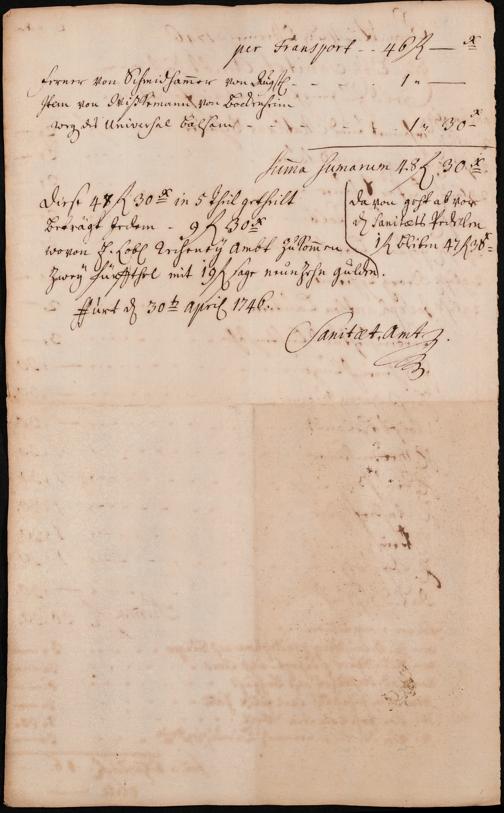 per Transport - - 46 f — x
ferner von Schmidhammer von Augsp. - - 1 " —
Item von Wißlemann von Bodenheim
weg. des Universal balsam - - - - 1 " 30 x
Suma Sumarum 48 f 30 x.
Diese 48 f 30 x in 5 theil getheilt
beträgt jedem - 9 f 30 x
wovon Z. Löbl Recheney Ambt zusamen
Zwey fünffthel mit 19 f sage neunzehn gulden.
da von geht ab vor
d Sanitæts Pedellen
1 f bliben 47 f 30 x
ffurt d 30t April 1746.
Sanitæt. Amt.